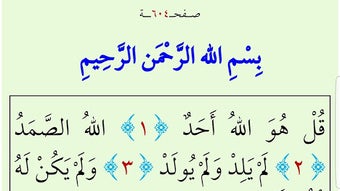 صفحـ٦٠٤ـة
بِسْمِ اللهِ الرَّحْمَنِ الرَّحِيمِ
قُلْ هُوَ اللهُ أَحَدٌ ﴿١﴾ اللهُ الصَّمَدُ
﴿٢﴾ لَمْ يَلِدْ وَلَمْ يُولَدْ ﴿٣﴾ وَلَمْ يَكُنْ لَهُ